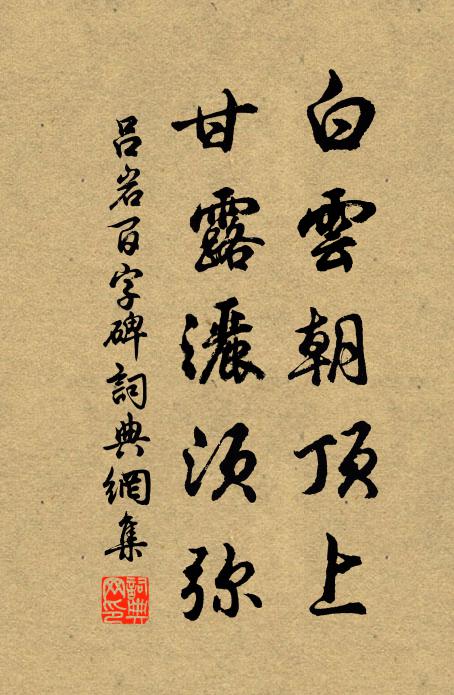 白雲朝頂上
甘露灑須弥
吕岩百字碑詞典網集
詞典网印